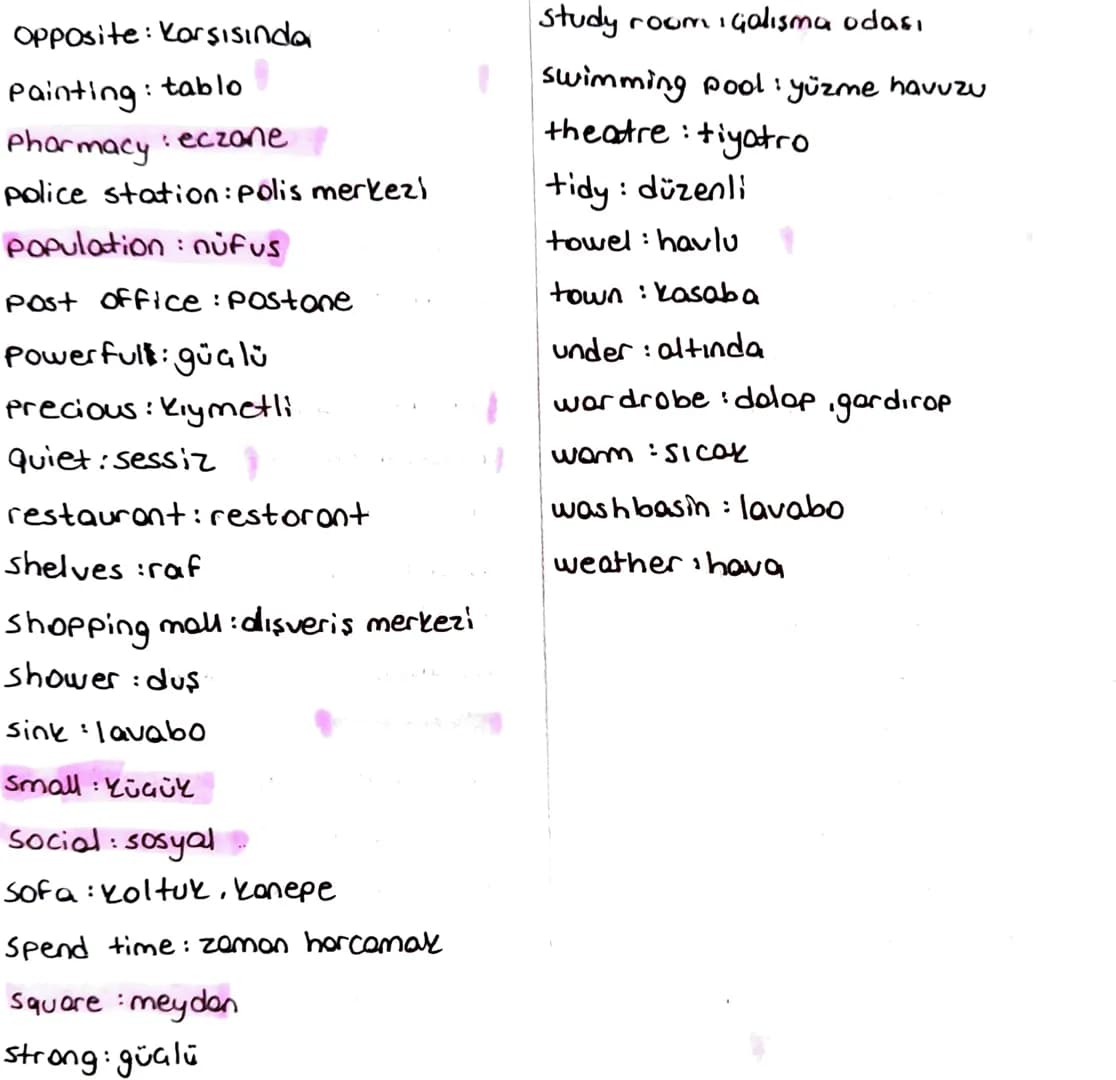 opposite : karşısında
painting : tablo
pharmacy : eczane
police station : polis merkezi
population : nüfus
post office : postane
powerfull : güçlü
precious : kıymetli
quiet : sessiz
restaurant : restorant
shelves : raf
shopping mall : dışveris merkezi
shower : duş
sink : lavabo
small : küçük
social : sosyal
sofa : koltuk, kanepe
spend time : zaman harcamak
square : meydan
strong : güçlü
study room : çalışma odası
swimming pool : yüzme havuzu
theatre : tiyatro
tidy : düzenli
towel : havlu
town : kasaba
under : altında
wardrobe : dolap, gardırop
warm : sıcak
washbasin : lavabo
weather : hava